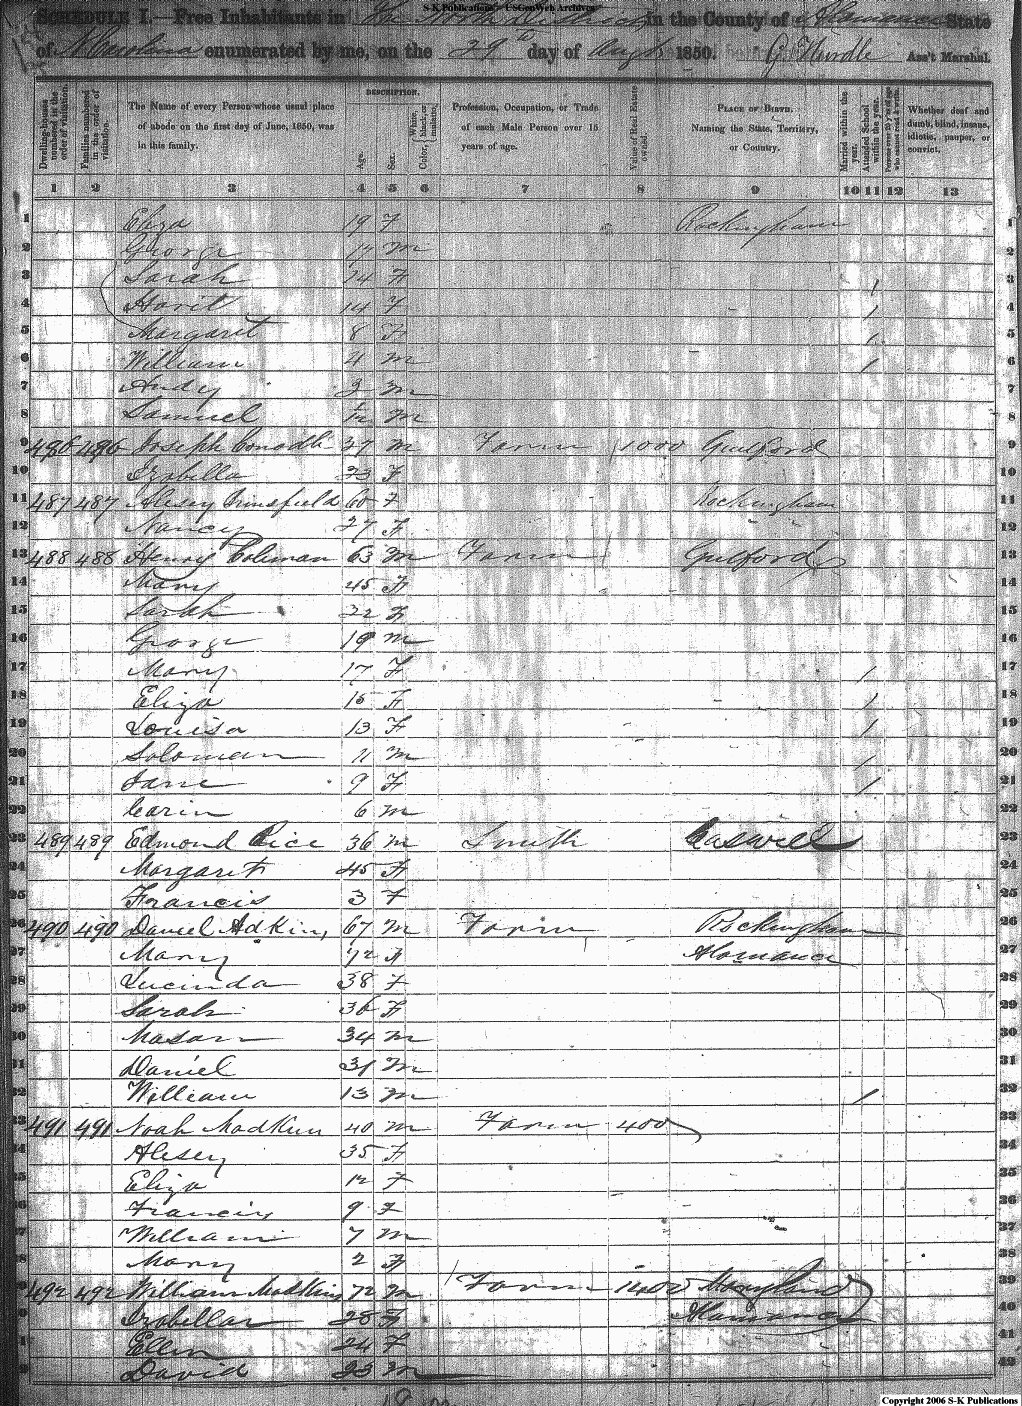 S-K Publications - USGenWeb Archives
SCHEDULE I.—Free Inhabitants in The North District in the County of Alamance State
of N Carolina enumerated by me, on the 29th day of Augt 1850. Ass't Marshal.
Dwelling-houses numbered in the order of visitation.
Families numbered in the order of visitation.
The Name of every Person whose usual place of abode on the first day of June, 1850, was in this family.
DESCRIPTION.
Age.
Sex.
Color, White, black, or mulatto.
Profession, Occupation, or Trade of each Male Person over 15 years of age.
Value of Real Estate owned.
PLACE OF BIRTH. Naming the State, Territory, or Country.
Married within the year.
Attended School within the year.
Persons over 20 y'rs of age who cannot read & write.
Whether deaf and dumb, blind, insane, idiotic, pauper, or convict.
1 2 3 4 5 6 7 8 9 10 11 12 13
1 Eliza 19 F Rockingham 1
2 George 17 M 2
3 Sarah 14 F 1 3
4 14 F 1 4
5 Margaret 8 F 1 5
6 William 4 M 1 6
7 Andy 3 M 7
8 Samuel M 8
9 486 486 Joseph 37 M Farm 1000 Guilford 9
10 Izabella 23 F 10
11 487 487 Alesey 60 F Rockingham 11
12 Nancy 27 F 12
13 488 488 Henry Coleman 63 M Farm Gulford 13
14 Mary 45 F 14
15 Sarah 22 F 15
16 George 19 M 16
17 Mary 17 F 1 17
18 Eliza 15 F 1 18
19 Louisa 13 F 1 19
20 Soloman 11 M 1 20
21 Jane 9 F 1 21
22 6 M 22
23 489 489 Edmond Rice 36 M Smith Caswell 23
24 Margaret 45 F 24
25 Francis 3 F 25
26 490 490 Daniel Adkins 67 M Farm Rockingham 26
27 Mary 72 F Alamance 27
28 Lucinda 38 F 28
29 Sarah 36 F 29
30 Mason 34 M 30
31 Daniel 31 M 31
32 William 13 M 1 32
33 491 491 Noah Madkins 40 M Farm 400 33
34 Alesey 35 F 34
35 Eliza 12 F 35
36 Francis 9 F 36
37 William 7 M 37
38 Mary 2 F 38
39 492 492 William Madkins 72 M Farm 1400 Maryland 39
40 Izabellar 28 F Alamance 40
41 Ellen 24 F 41
42 David 23 M 42
Copyright 2006 S-K Publications